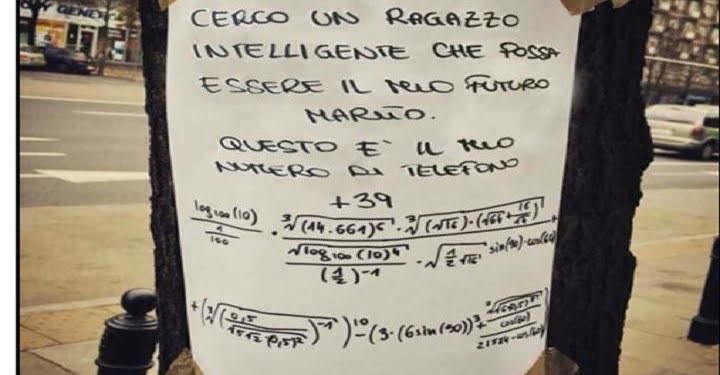 CERCO UN RAGAZZO
INTELLIGENTE CHE POSSA
ESSERE IL MIO FUTURO
MARITO.
QUESTO E' IL MIO
NUMERO DI TELEFONO
+39
log100(10) / (1/100) · ∛(14.661)⁶ · ∛(√16)·(√64+16/
√log100(10)⁴ / (1/2)⁻¹ · √(1/2 √16) sin(90)·cos(60)
0,5
)¹⁰ -(3·(6sin(90))³+
cos(60)
21584-cos(60)